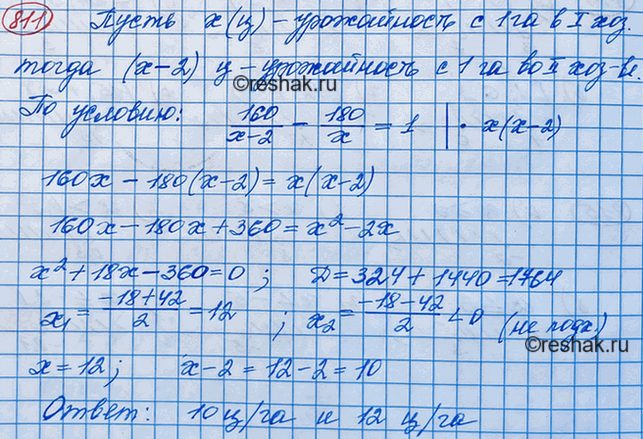 811 Пусть x(ц) – урожайность с 1 га в I хоз.
тогда (x–2) ц – урожайность с 1 га во II хоз-ве.
©reshak.ru
По условию: 160/(x–2) – 180/x = 1 | · x(x–2)
160x – 180(x–2) = x(x–2)
160x – 180x + 360 = x² – 2x
x² + 18x – 360 = 0 ; D = 324 + 1440 = 1764
x₁ = (–18+42)/2 = 12 ; x₂ = (–18–42)/2 < 0 (не подх.)
©reshak.ru
x = 12 ; x – 2 = 12 – 2 = 10
Ответ: 10 ц/га и 12 ц/га